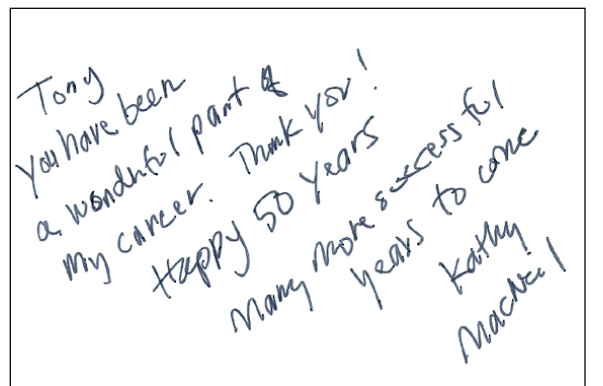 Tony
You have been
a wonderful part of
my career. Thank you!
Happy 50 Years
Many more successful
years to come
Kathy
MacNeil